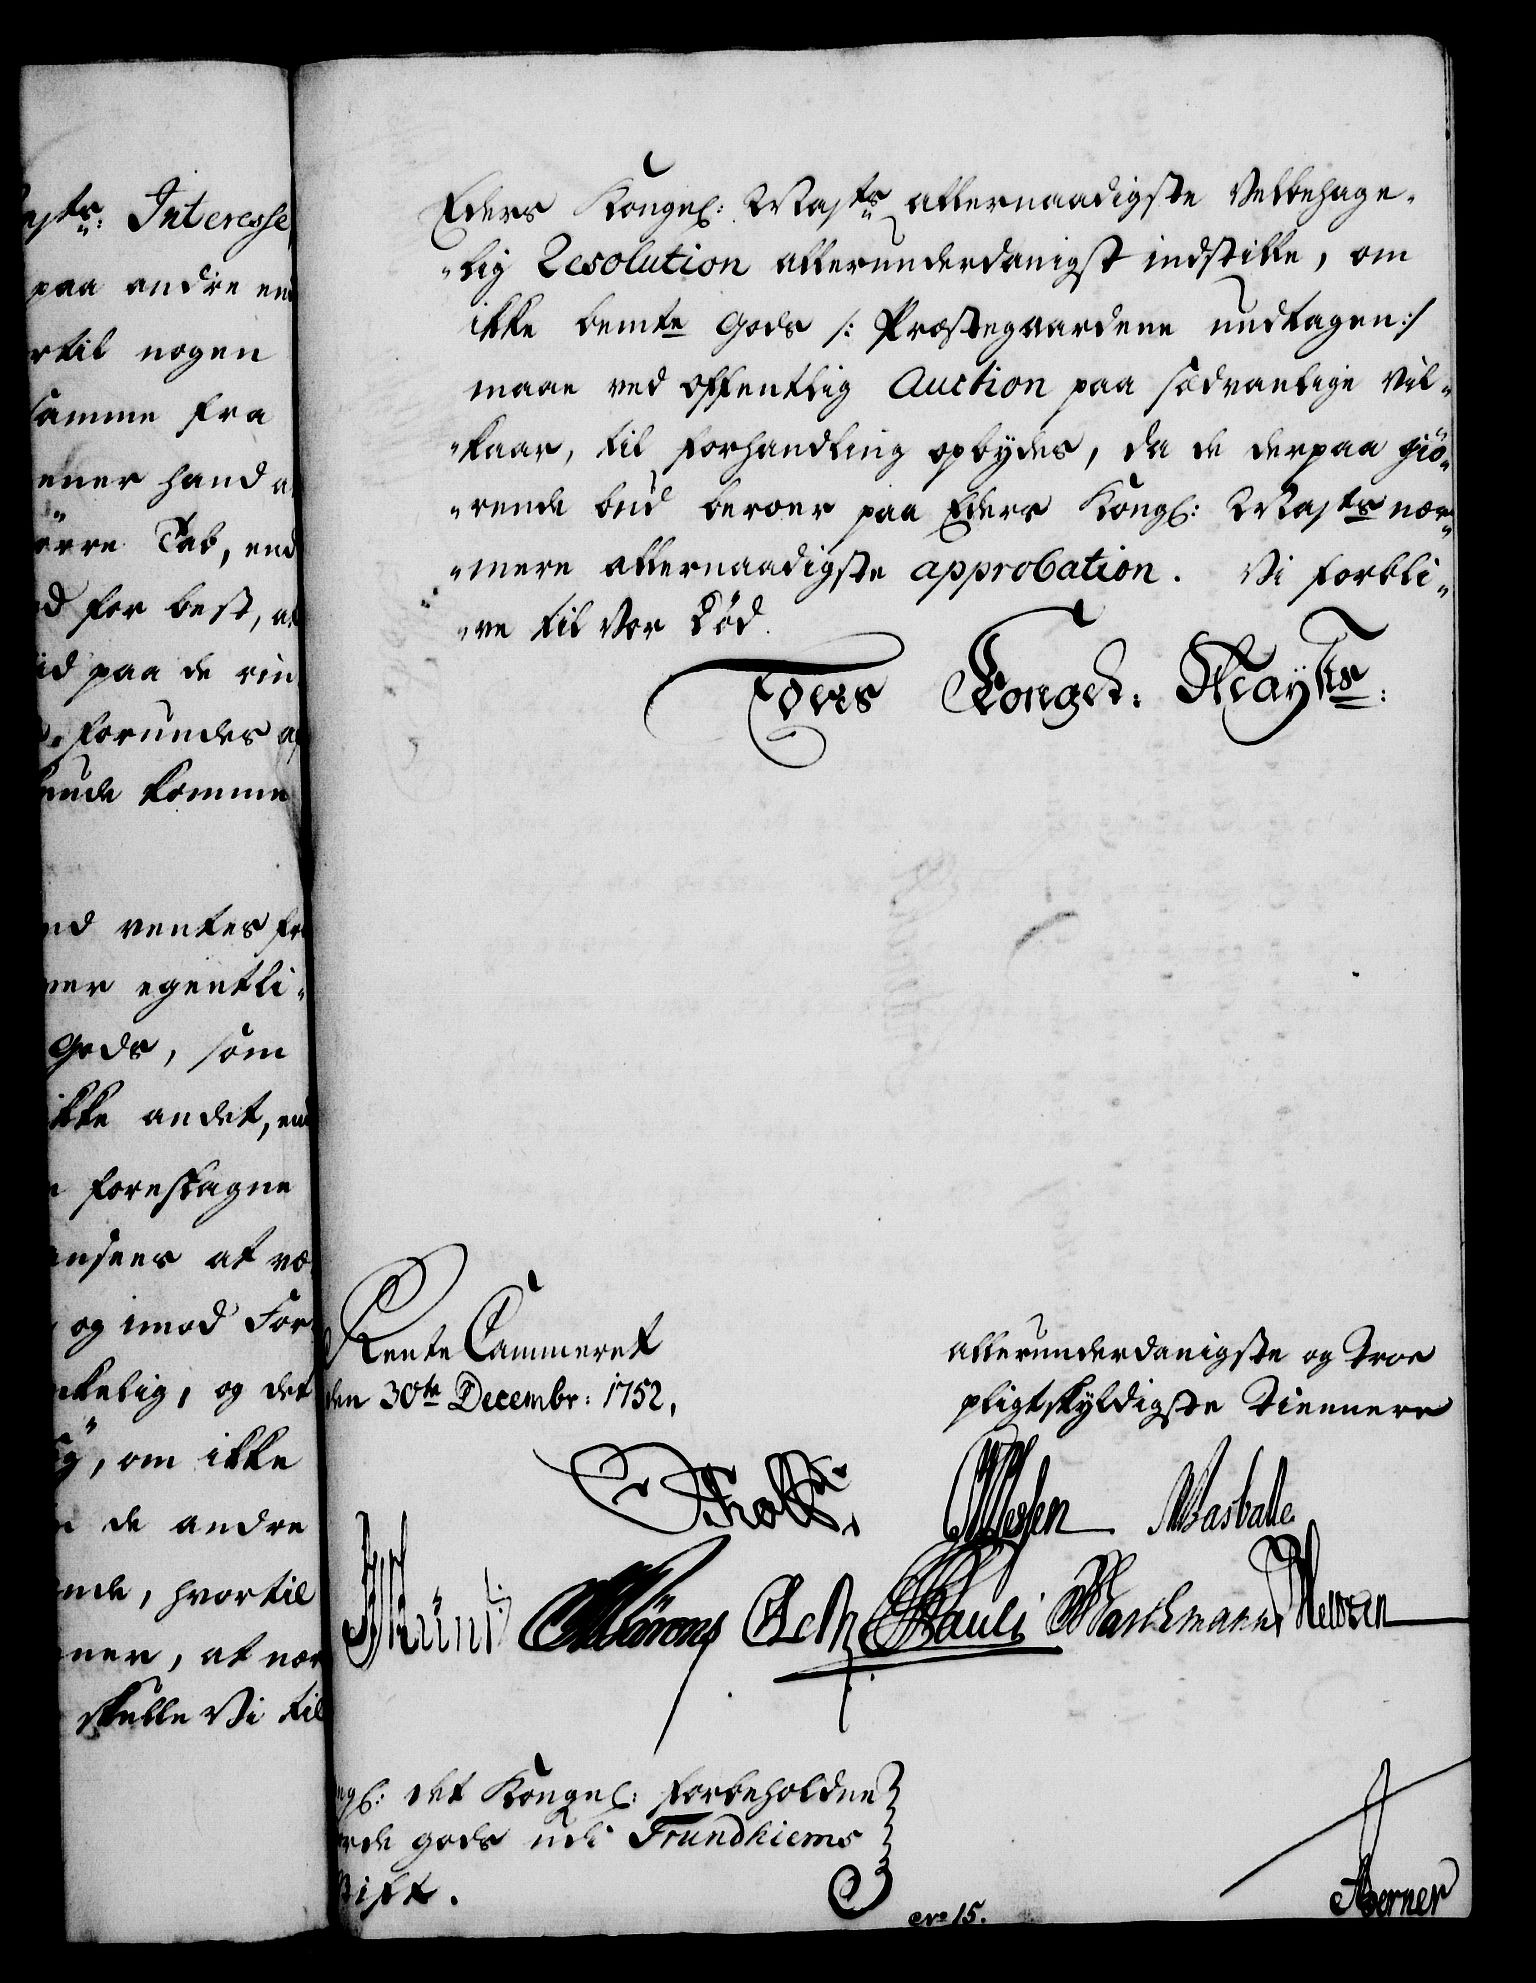 Majts: Interesse
paa andre end
rtil nogen
samme fra
ener hand a
ørre Tab, end
d for best, at
id paa de rin
forundes a
kunde komme
nd ventes fr
ner egentli-
Gods, som
ikke andet, end
foreslagne
ansees at væ
og imod For
kelig, og det
om ikke
de andre
ende, hvortil
ner, at nær
skulle Vi til
Eders Kongel: Majts allernaadigste Velbehage-
-lig Resolution allerunderdanigst indstille, om
ikke bemte Gods /: Præstegaardene undtagen:/
maae ved offentlig Auction paa sædvanlige Vil-
-kaar, til forhandling opbydes, da de derpaa giö-
-rende bud beroer paa Eders Kongl: Majts nær-
-mere allernaadigste approbation. Vi forbli-
-ve til Vor Död.
Eders Kongel: Mayts:
Rente Cammeret
den 30te Decembr: 1752.
allerunderdanigste og troe
pligtskyldigste Tiennere
Holst. Wessen Masballe
Pauli
ngl: det Kongel: forbeholdne
orde gods udi Trundhiems
Stift.
No 15.
Berner